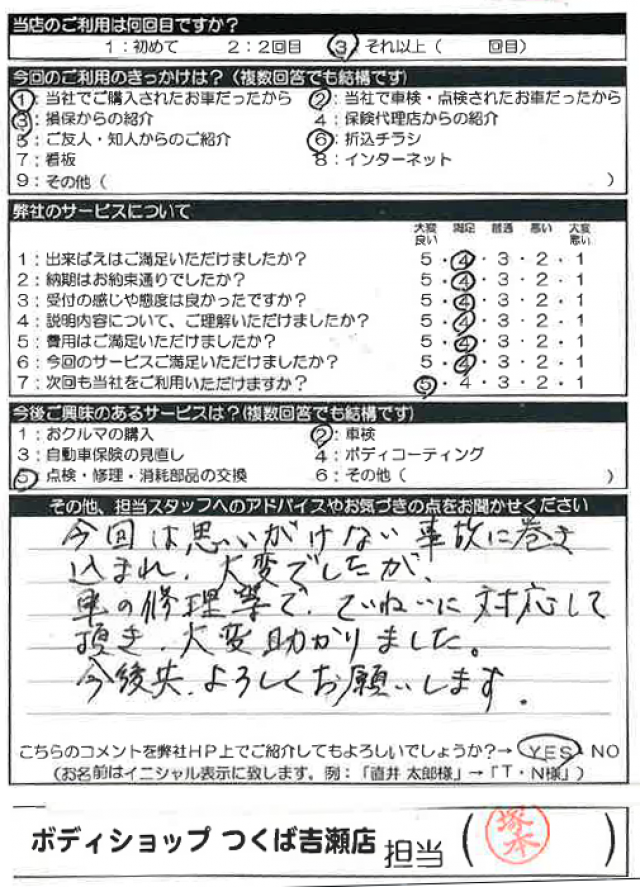 当店のご利用は何回目ですか?
1:初めて 2:2回目 3:それ以上( 回目)
今回のご利用のきっかけは?(複数回答でも結構です)
1:当社でご購入されたお車だったから 2:当社で車検・点検されたお車だったから
3:損保からの紹介 4:保険代理店からの紹介
5:ご友人・知人からのご紹介 6:折込チラシ
7:看板 8:インターネット
9:その他( )
弊社のサービスについて
大変良い 満足 普通 悪い 大変悪い
1:出来ばえはご満足いただけましたか? 5・4・3・2・1
2:納期はお約束通りでしたか? 5・4・3・2・1
3:受付の感じや態度は良かったですか? 5・4・3・2・1
4:説明内容について、ご理解いただけましたか? 5・4・3・2・1
5:費用はご満足いただけましたか? 5・4・3・2・1
6:今回のサービスご満足いただけましたか? 5・4・3・2・1
7:次回も当社をご利用いただけますか? 5・4・3・2・1
今後ご興味のあるサービスは?(複数回答でも結構です)
1:おクルマの購入 2:車検
3:自動車保険の見直し 4:ボディコーティング
5:点検・修理・消耗部品の交換 6:その他( )
その他、担当スタッフへのアドバイスやお気づきの点をお聞かせください
今回は思いがけない事故に巻き
込まれ、大変でしたが、
車の修理等で、ていねいに対応して
頂き、大変助かりました。
今後共、よろしくお願いします。
こちらのコメントを弊社HP上でご紹介してもよろしいでしょうか?→ YES・NO
(お名前はイニシャル表示に致します。例:「直井 太郎様」→「T・N様」)
ボディショップ つくば吉瀬店 担当( 塚本 )